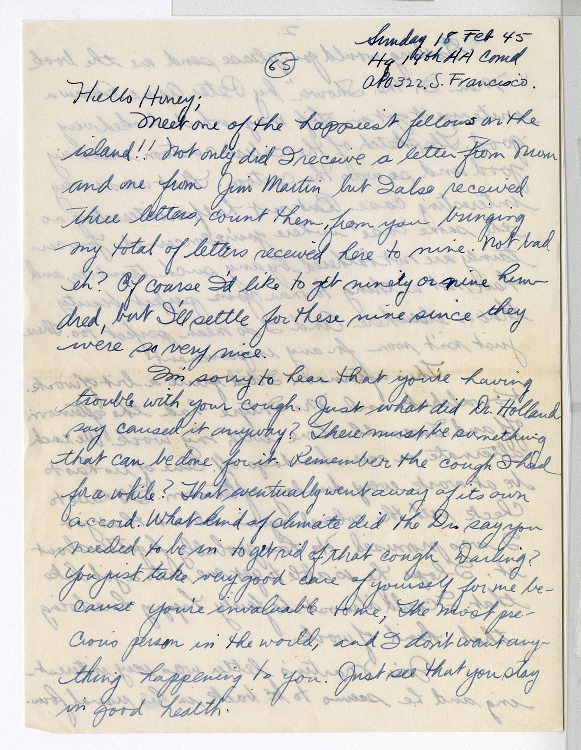 Sunday 18 Feb 45
Hq 14th AA Comd
APO 322, S. Francisco.
65
Hello Honey;
Meet one of the happiest fellows on the
island!! Not only did I receive a letter from Mom
and one from Jim Martin but I also received
three letters, count them, from you bringing
my total of letters received here to nine. Not bad
eh? Of coarse I'd like to get ninety or nine hun-
dred, but I'll settle for these nine since they
were so very nice.
I'm sorry to hear that you're having
trouble with your cough. Just what did Dr. Holland
say caused it anyway? There must be something
that can be done for it. Remember the cough I had
for a while? That eventually went away of its own
accord. What kind of climate did the Drs say you
needed to be in to get rid of that cough Darling?
You just take very good care of yourself for me be-
cause you're invaluable to me, The most pre-
cious person in the world, and I don't want any-
thing happening to you. Just see that you stay
in good health.